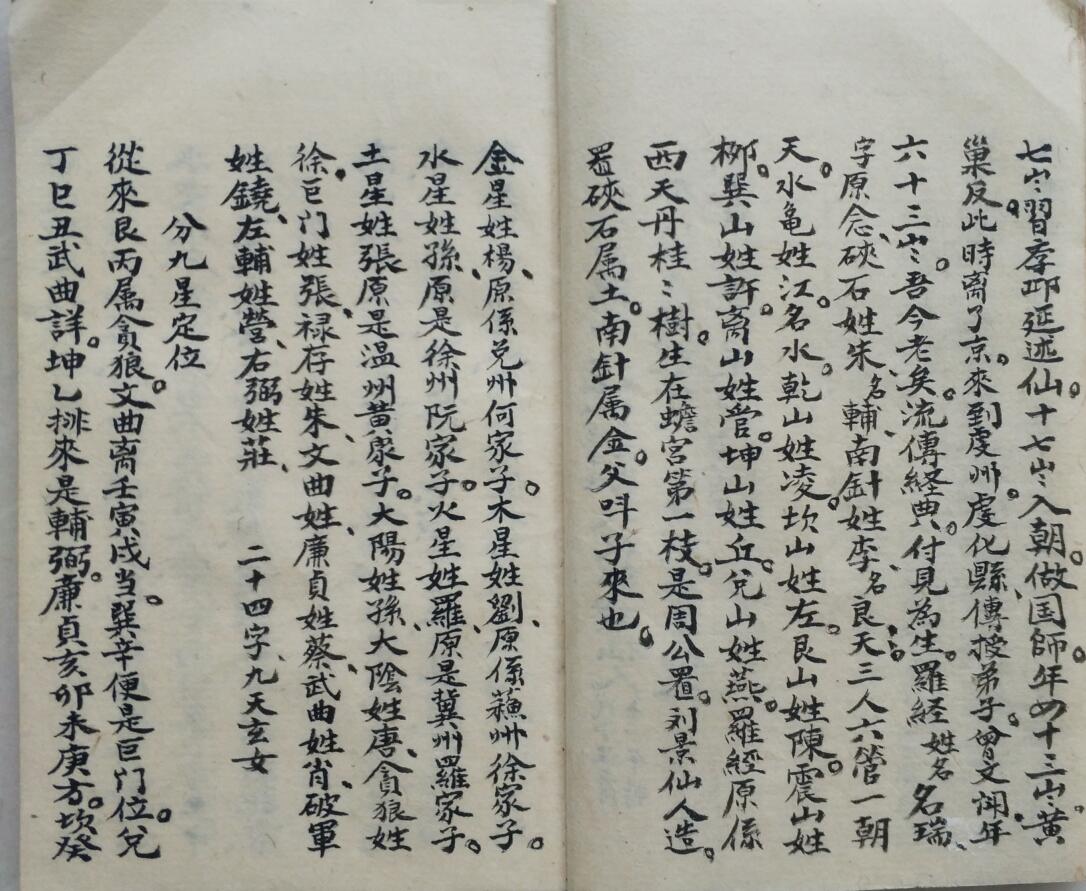 七岁習李邛延述仙。十七岁入朝。做国師。年四十三岁。黄
巢反。此時离了京。來到虔州虔化縣、傳授弟子。曾文辿。年
六十三岁。吾今老矣。流傳経典。付見為生。羅経姓名名瑞、
字原念、硤石姓朱、名輔、南針姓李、名良、天三人六管一朝
天。水龟姓江。名水。乾山姓凌。坎山姓左。艮山姓陳。震山姓
柳。巽山姓許。离山姓管。坤山姓丘。兌山姓燕。羅經原係
西天丹桂〻樹。生在蟾宮第一枝。是周公置。刘景仙人造。
置硤石属土。南針属金。父呌子來也。
金星姓楊、原係兌州何家子。木星姓劉、原係蘓州徐家子。
水星姓孫、原是徐州阮家子。火星姓羅、原是冀州羅家子。
土星姓張、原是温州黄家子。大陽姓孫、大陰姓唐、貪狼姓
徐。巨门姓張、禄存姓朱、文曲姓、廉貞姓蔡、武曲姓肖、破軍
姓鐃、左輔姓營、右弼姓莊、
二十四字、九天玄女
分九星定位
從來艮丙属貪狼。文曲离壬寅戌当。巽辛便是巨门位。兌
丁巳丑武曲詳。坤乙排來是輔弼。廉貞亥卯未庚方。坎癸